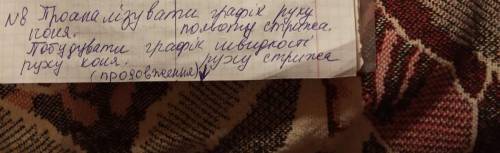 №8 Проаналізувати графік руху
коня. польоту стрижа.
Побудувати графік швидкості
руху коня. руху стрижа
(продовження)